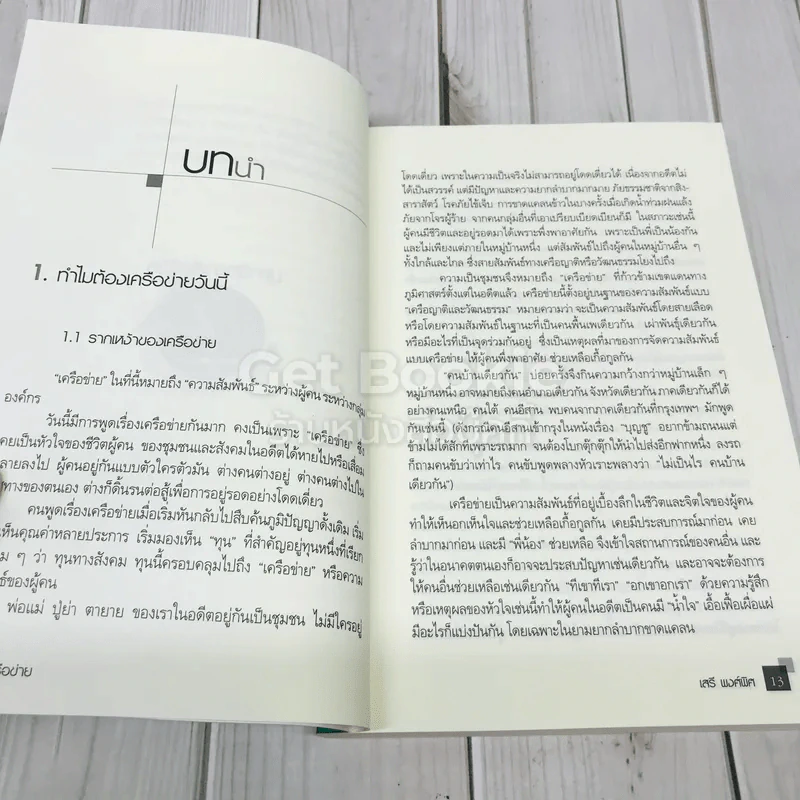 บทนำ
1. ทำไมต้องเครือข่ายวันนี้
1.1 รากเหง้าของเครือข่าย
"เครือข่าย" ในที่นี้หมายถึง "ความสัมพันธ์" ระหว่างผู้คน ระหว่างกลุ่ม
องค์กร
วันนี้มีการพูดเรื่องเครือข่ายกันมาก คงเป็นเพราะ "เครือข่าย" ซึ่ง
คยเป็นหัวใจของชีวิตผู้คน ของชุมชนและสังคมในอดีตได้หายไปหรือเสื่อม
ลายลงไป ผู้คนอยู่กันแบบตัวใครตัวมัน ต่างคนต่างอยู่ ต่างคนต่างไปใน
ทางของตนเอง ต่างก็ดิ้นรนต่อสู้เพื่อการอยู่รอดอย่างโดดเดี่ยว
คนพูดเรื่องเครือข่ายเมื่อเริ่มหันกลับไปสืบค้นภูมิปัญญาดั้งเดิม เริ่ม
เห็นคุณค่าหลายประการ เริ่มมองเห็น "ทุน" ที่สำคัญอยู่ทุนหนึ่งที่เรียก
ม ๆ ว่า ทุนทางสังคม ทุนนี้ครอบคลุมไปถึง "เครือข่าย" หรือความ
ธ์ของผู้คน
พ่อแม่ ปู่ย่า ตายาย ของเราในอดีตอยู่กันเป็นชุมชน ไม่มีใครอยู่
รือข่าย
โดดเดี่ยว เพราะในความเป็นจริงไม่สามารถอยู่โดดเดี่ยวได้ เนื่องจากอดีตไม่
ได้เป็นสวรรค์ แต่มีปัญหาและความยากลำบากมากมาย ภัยธรรมชาติจากสิง-
สาราสัตว์ โรคภัยไข้เจ็บ การขาดแคลนข้าวในบางครั้งเมื่อเกิดน้ำท่วมฝนแล้ง
ภัยจากโจรผู้ร้าย จากคนกลุ่มอื่นที่เอาเปรียบเบียดเบียนก็มี ในสภาวะเช่นนี้
ผู้คนมีชีวิตและอยู่รอดมาได้เพราะพึ่งพาอาศัยกัน เพราะเป็นพี่เป็นน้องกัน
และไม่เพียงแต่ภายในหมู่บ้านหนึ่ง แต่สัมพันธ์ไปถึงผู้คนในหมู่บ้านอื่น ๆ
ทั้งใกล้และไกล ซึ่งสายสัมพันธ์ทางเครือญาติหรือวัฒนธรรมโยงไปถึง
ความเป็นชุมชนจึงหมายถึง "เครือข่าย" ที่ก้าวข้ามเขตแดนทาง
ภูมิศาสตร์ตั้งแต่ในอดีตแล้ว เครือข่ายนี้ตั้งอยู่บนฐานของความสัมพันธ์แบบ
"เครือญาติและวัฒนธรรม" หมายความว่า จะเป็นความสัมพันธ์โดยสายเลือด
หรือโดยความสัมพันธ์ในฐานะที่เป็นคนพื้นเพเดียวกัน เผ่าพันธุ์เดียวกัน
หรือมีอะไรที่เป็นจุดร่วมกันอยู่ ซึ่งเป็นเหตุผลที่มาของการจัดความสัมพันธ์
แบบเครือข่าย ให้ผู้คนพึ่งพาอาศัย ช่วยเหลือเกื้อกูลกัน
"คนบ้านเดียวกัน" บ่อยครั้งจึงกินความกว้างกว่าหมู่บ้านเล็ก ๆ
หมู่บ้านหนึ่ง อาจหมายถึงคนอำเภอเดียวกัน จังหวัดเดียวกัน ภาคเดียวกันก็ได้
อย่างคนเหนือ คนใต้ คนอีสาน พบคนจากภาคเดียวกันที่กรุงเทพฯ มักพูด
กันเช่นนี้ (ดังกรณีคนอีสานเข้ากรุงในหนังเรื่อง "บุญชู" อยากข้ามถนนแต่
ข้ามไม่ได้สักทีเพราะรถมาก จนต้องโบกตุ๊กตุ๊กให้นำไปส่งอีกฟากหนึ่ง ลงรถ
ก็ถามคนขับว่าเท่าไร คนขับพูดพลางหัวเราะพลางว่า "ไม่เป็นไร คนบ้าน
เดียวกัน")
เครือข่ายเป็นความสัมพันธ์ที่อยู่เบื้องลึกในชีวิตและจิตใจของผู้คน
ทำให้เห็นอกเห็นใจและช่วยเหลือเกื้อกูลกัน เคยมีประสบการณ์มาก่อน เคย
ลำบากมาก่อน และมี "พี่น้อง" ช่วยเหลือ จึงเข้าใจสถานการณ์ของคนอื่น และ
รู้ว่าในอนาคตตนเองก็อาจจะประสบปัญหาเช่นเดียวกัน และอาจจะต้องการ
ให้คนอื่นช่วยเหลือเช่นเดียวกัน "ทีเขาทีเรา" "อกเขาอกเรา" ด้วยความรู้สึก
หรือเหตุผลของหัวใจเช่นนี้ทำให้ผู้คนในอดีตเป็นคนมี "น้ำใจ" เอื้อเฟื้อเผื่อแผ่
มีอะไรก็แบ่งปันกัน โดยเฉพาะในยามยากลำบากขาดแคลน
เสรี พงศ์พิศ 13